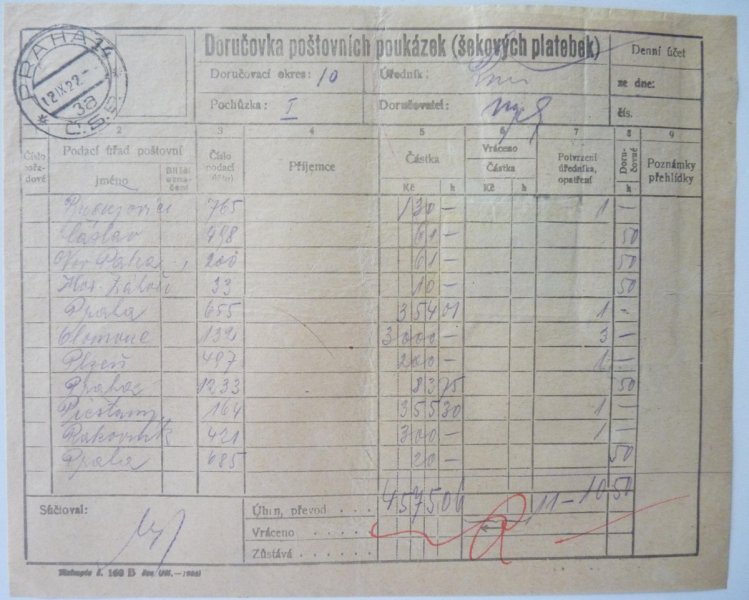 PRAHA 14
12.IX.22.-
3a
Č.S.P.
Doručovka poštovních poukázek (šekových platebek)
Denní účet
Doručovací okres: 10 Úředník:
ze dne:
Pochůzka: I Doručovatel:
čís.
2 3 4 5 6 7 8 9
Číslo pořadové Podací úřad poštovní jméno Číslo podací Příjemce Částka Kč h Vráceno Částka Kč h Potvrzení úředníka, opatření Doručovné h Poznámky přehlídky
765 130 - 1 -
Čáslav 498 61 - 50
Nov. Paka 200 61 - 50
33 10 - 50
Praha 655 354 01 1 -
Olomouc 132 3000 - 3 -
Plzeň 497 200 - 1 -
Praha 1233 83 75 50
Piešťany 164 355 30 1 -
Rakovník 421 300 - 1 -
Praha 685 20 - 50
Súčtoval: Úhrn, převod 4575 06 11 - 10 50
Vráceno
Zůstává
160 B